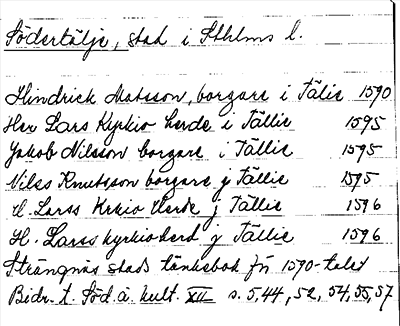 Södertälje, stad i Sthlms l.
Hindrick Matsson, borgare i Tälie 1590
Her Lars Kyrkio herde i Tällie 1595
Jakob Nilsson borgare i Tällie 1595
Nilss Knutsson borgare j Tällie 1595
H. Larss Krkio Herde j Tällie 1596
H. Larss kyrkioherd j Tällie 1596
Strängnäs stads tänkebok fr 1590-talet
Bidr. t. Söd. ä. kult. XII s. 5, 44, 52, 54, 55, 57